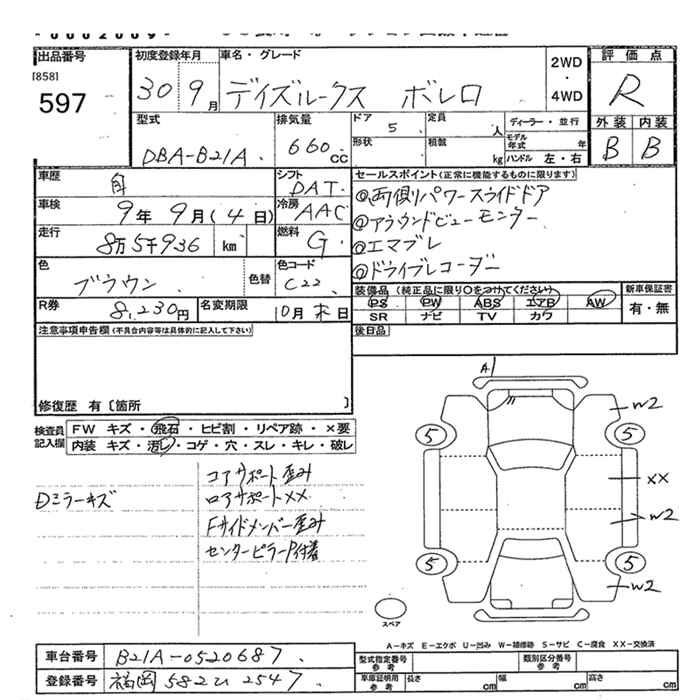 出品番号
[858]
597
初度登録年月
30 9月
車名・グレード
デイズルークス ボレロ
2WD
・
4WD
評価点
R
外装 内装
B B
型式
DBA-B21A
排気量
660cc
ドア 5
定員 人
形状
積載 kg
ディーラー・並行
モデル年式 年
ハンドル 左・右
車歴
自
シフト
DAT
車検
9年 9月(4日)
冷房
AAC
走行
8万5千936 km
燃料
G
色
ブラウン
色替
色コード
C22
R券
8,230円
名変期限
10月末日
セールスポイント(正常に機能するものに限ります)
◎両側パワースライドドア
◎アラウンドビューモニター
◎エマブレ
◎ドライブレコーダー
装備品(純正品に限り○をつけてください)
PS PW ABS エアB AW
SR ナビ TV カワ
新車保証書
有・無
後日品
注意事項申告欄(不具合内容等は具体的に記入して下さい)
修復歴 有〔箇所 〕
検査員記入欄
FW キズ・飛石・ヒビ割・リペア跡・×要
内装 キズ・汚レ・コゲ・穴・スレ・キレ・破レ
Dミラーキズ
コアサポート歪み
ロアサポートXX
Fサイドメンバー歪み
センターピラーP付着
A1
W2
5 5
XX
W2
5 5
W2
スペア
A-キズ E-エクボ U-凹み W-補修跡 S-サビ C-腐食 XX-交換済
車台番号
B21A-0520687
登録番号
福岡582ひ2547
型式指定番号
参考
類別区分番号
参考
車庫証明用
参考
長さ cm
幅 cm
高さ cm